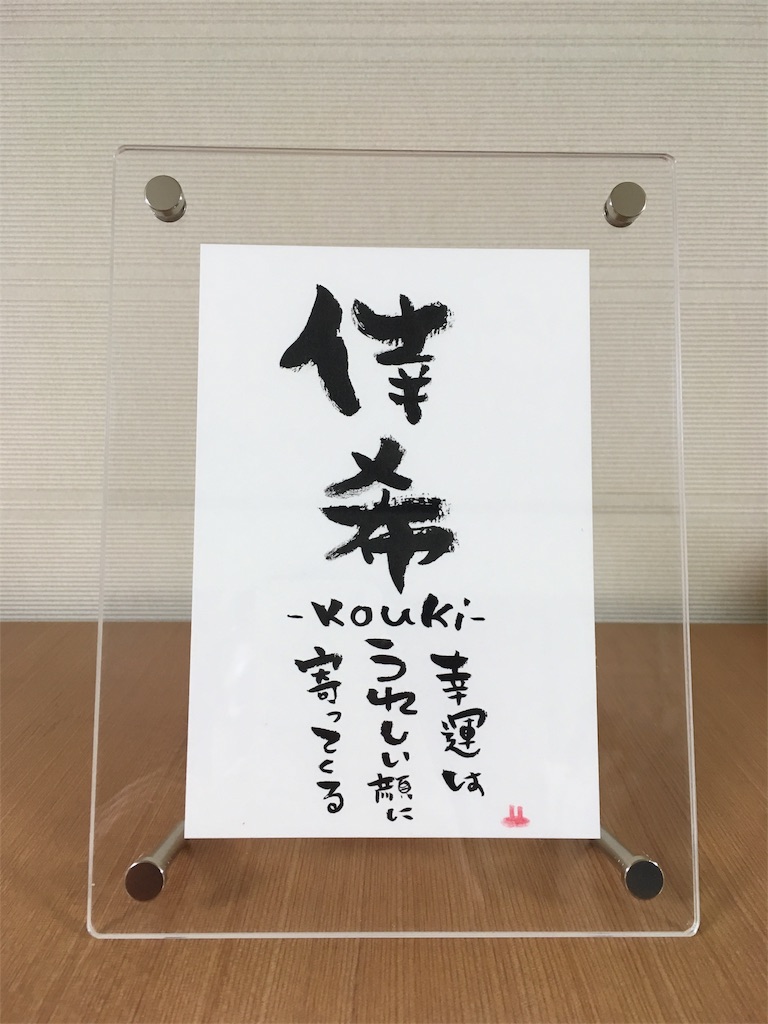 倖希
-kouki-
幸運は
うれしい顔に
寄ってくる